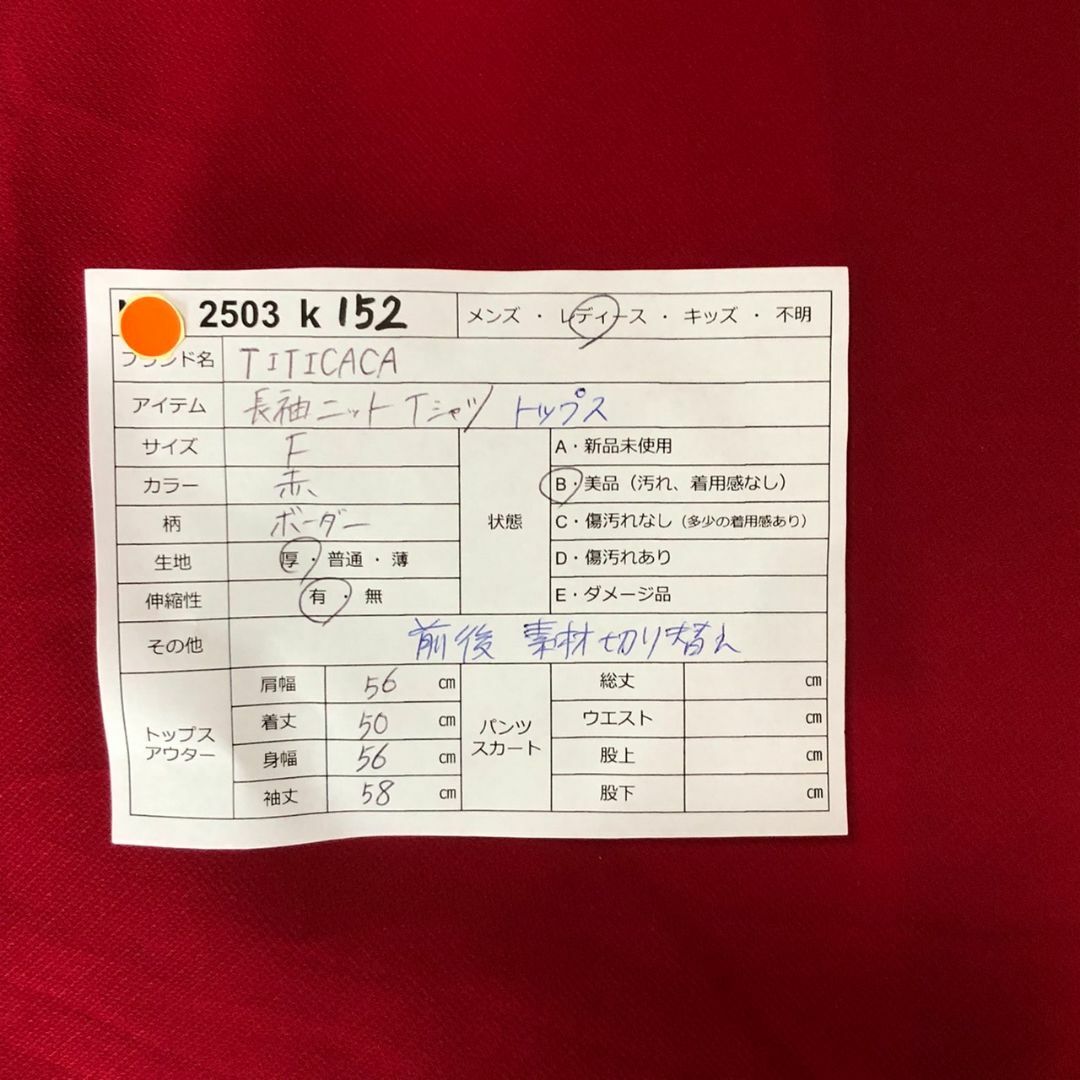 2503 k 152 メンズ ・ レディース ・ キッズ ・ 不明
ブランド名 TITICACA
アイテム 長袖ニットTシャツ トップス
サイズ F
カラー 赤、
柄 ボーダー
生地 厚・普通・薄
伸縮性 有・無
状態
A・新品未使用
B・美品（汚れ、着用感なし）
C・傷汚れなし（多少の着用感あり）
D・傷汚れあり
E・ダメージ品
その他 前後 素材切り替え
トップス
アウター
肩幅 56 ㎝
着丈 50 ㎝
身幅 56 ㎝
袖丈 58 ㎝
パンツ
スカート
総丈 ㎝
ウエスト ㎝
股上 ㎝
股下 ㎝